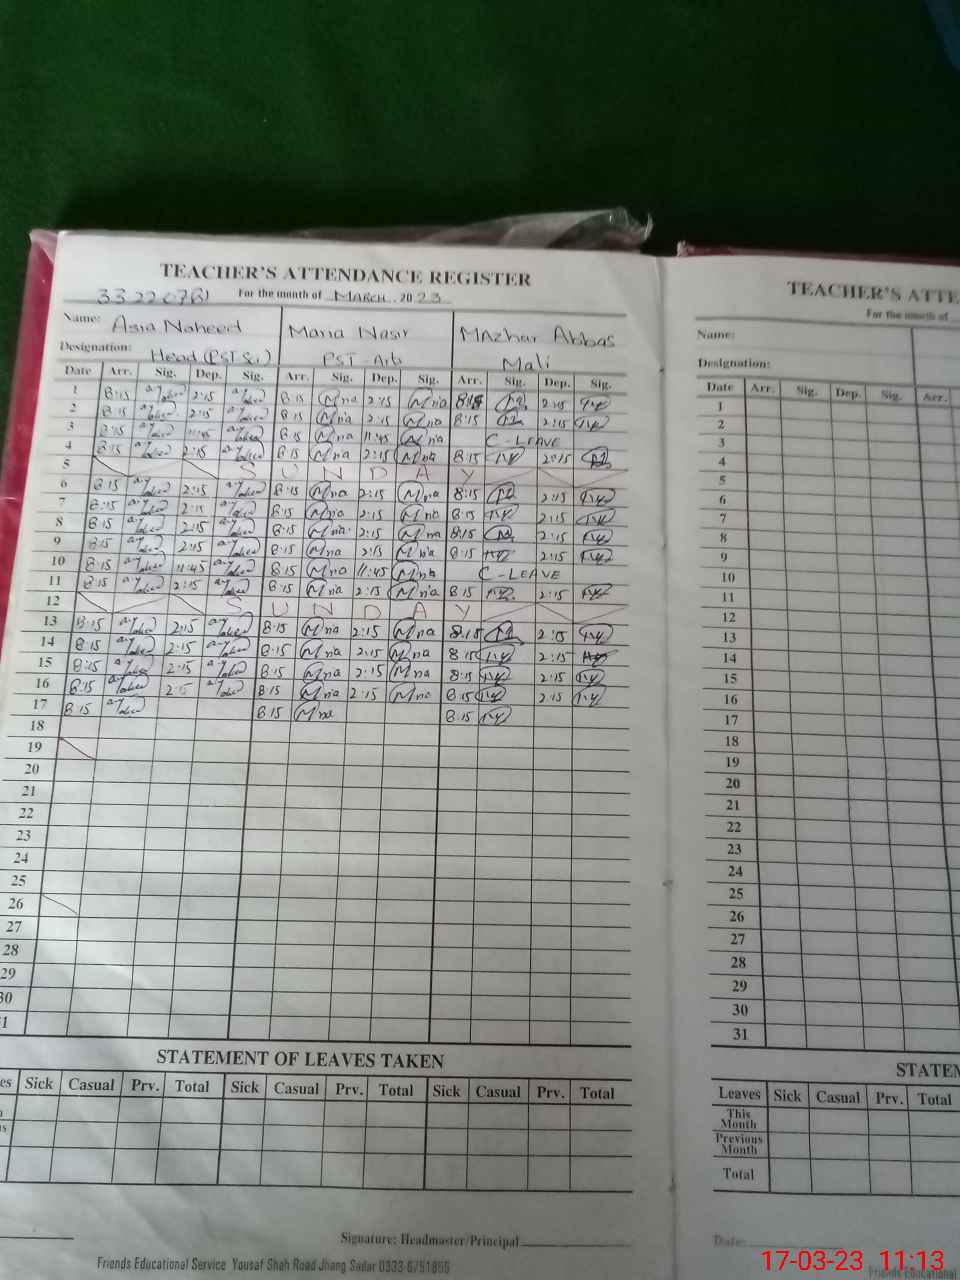 TEACHER'S ATTENDANCE REGISTER
For the month of MARCH 2023
Name: Asia Naheed Maria Nasir Mazhar Abbas
Designation: Head (PST Sci) PST - Arts Mali
Date Arr. Sig. Dep. Sig. Arr. Sig. Dep. Sig. Arr. Sig. Dep. Sig.
1 8:15 2:15 8:15 2:15 8:15 2:15
2 8:15 2:15 8:15 2:15 8:15 2:15
3 8:15 11:45 8:15 11:45 C-LEAVE
4 8:15 2:15 8:15 2:15 8:15 2:15
5 SUNDAY
6 8:15 2:15 8:15 2:15 8:15 2:15
7 8:15 2:15 8:15 2:15 8:15 2:15
8 8:15 2:15 8:15 2:15 8:15 2:15
9 8:15 2:15 8:15 2:15 8:15 2:15
10 8:15 11:45 8:15 11:45 C-LEAVE
11 8:15 2:15 8:15 2:15 8:15 2:15
12 SUNDAY
13 8:15 2:15 8:15 2:15 8:15 2:15
14 8:15 2:15 8:15 2:15 8:15 2:15
15 8:15 2:15 8:15 2:15 8:15 2:15
16 8:15 2:15 8:15 2:15 8:15 2:15
17 8:15 8:15 8:15
18
19
20
21
22
23
24
25
26
27
28
29
30
31
STATEMENT OF LEAVES TAKEN
Sick Casual Prv. Total Sick Casual Prv. Total Sick Casual Prv. Total
Signature: Headmaster/Principal
Friends Educational Service Yousaf Shah Road Jhang Sadar 0333-6751855
TEACHER'S ATTE
For the month of
Name:
Designation:
Date Arr. Sig. Dep. Sig. Arr.
1
2
3
4
5
6
7
8
9
10
11
12
13
14
15
16
17
18
19
20
21
22
23
24
25
26
27
28
29
30
31
STATEM
Leaves Sick Casual Prv. Total
This Month
Previous Month
Total
Date:
Friends Educational
17-03-23 11:13